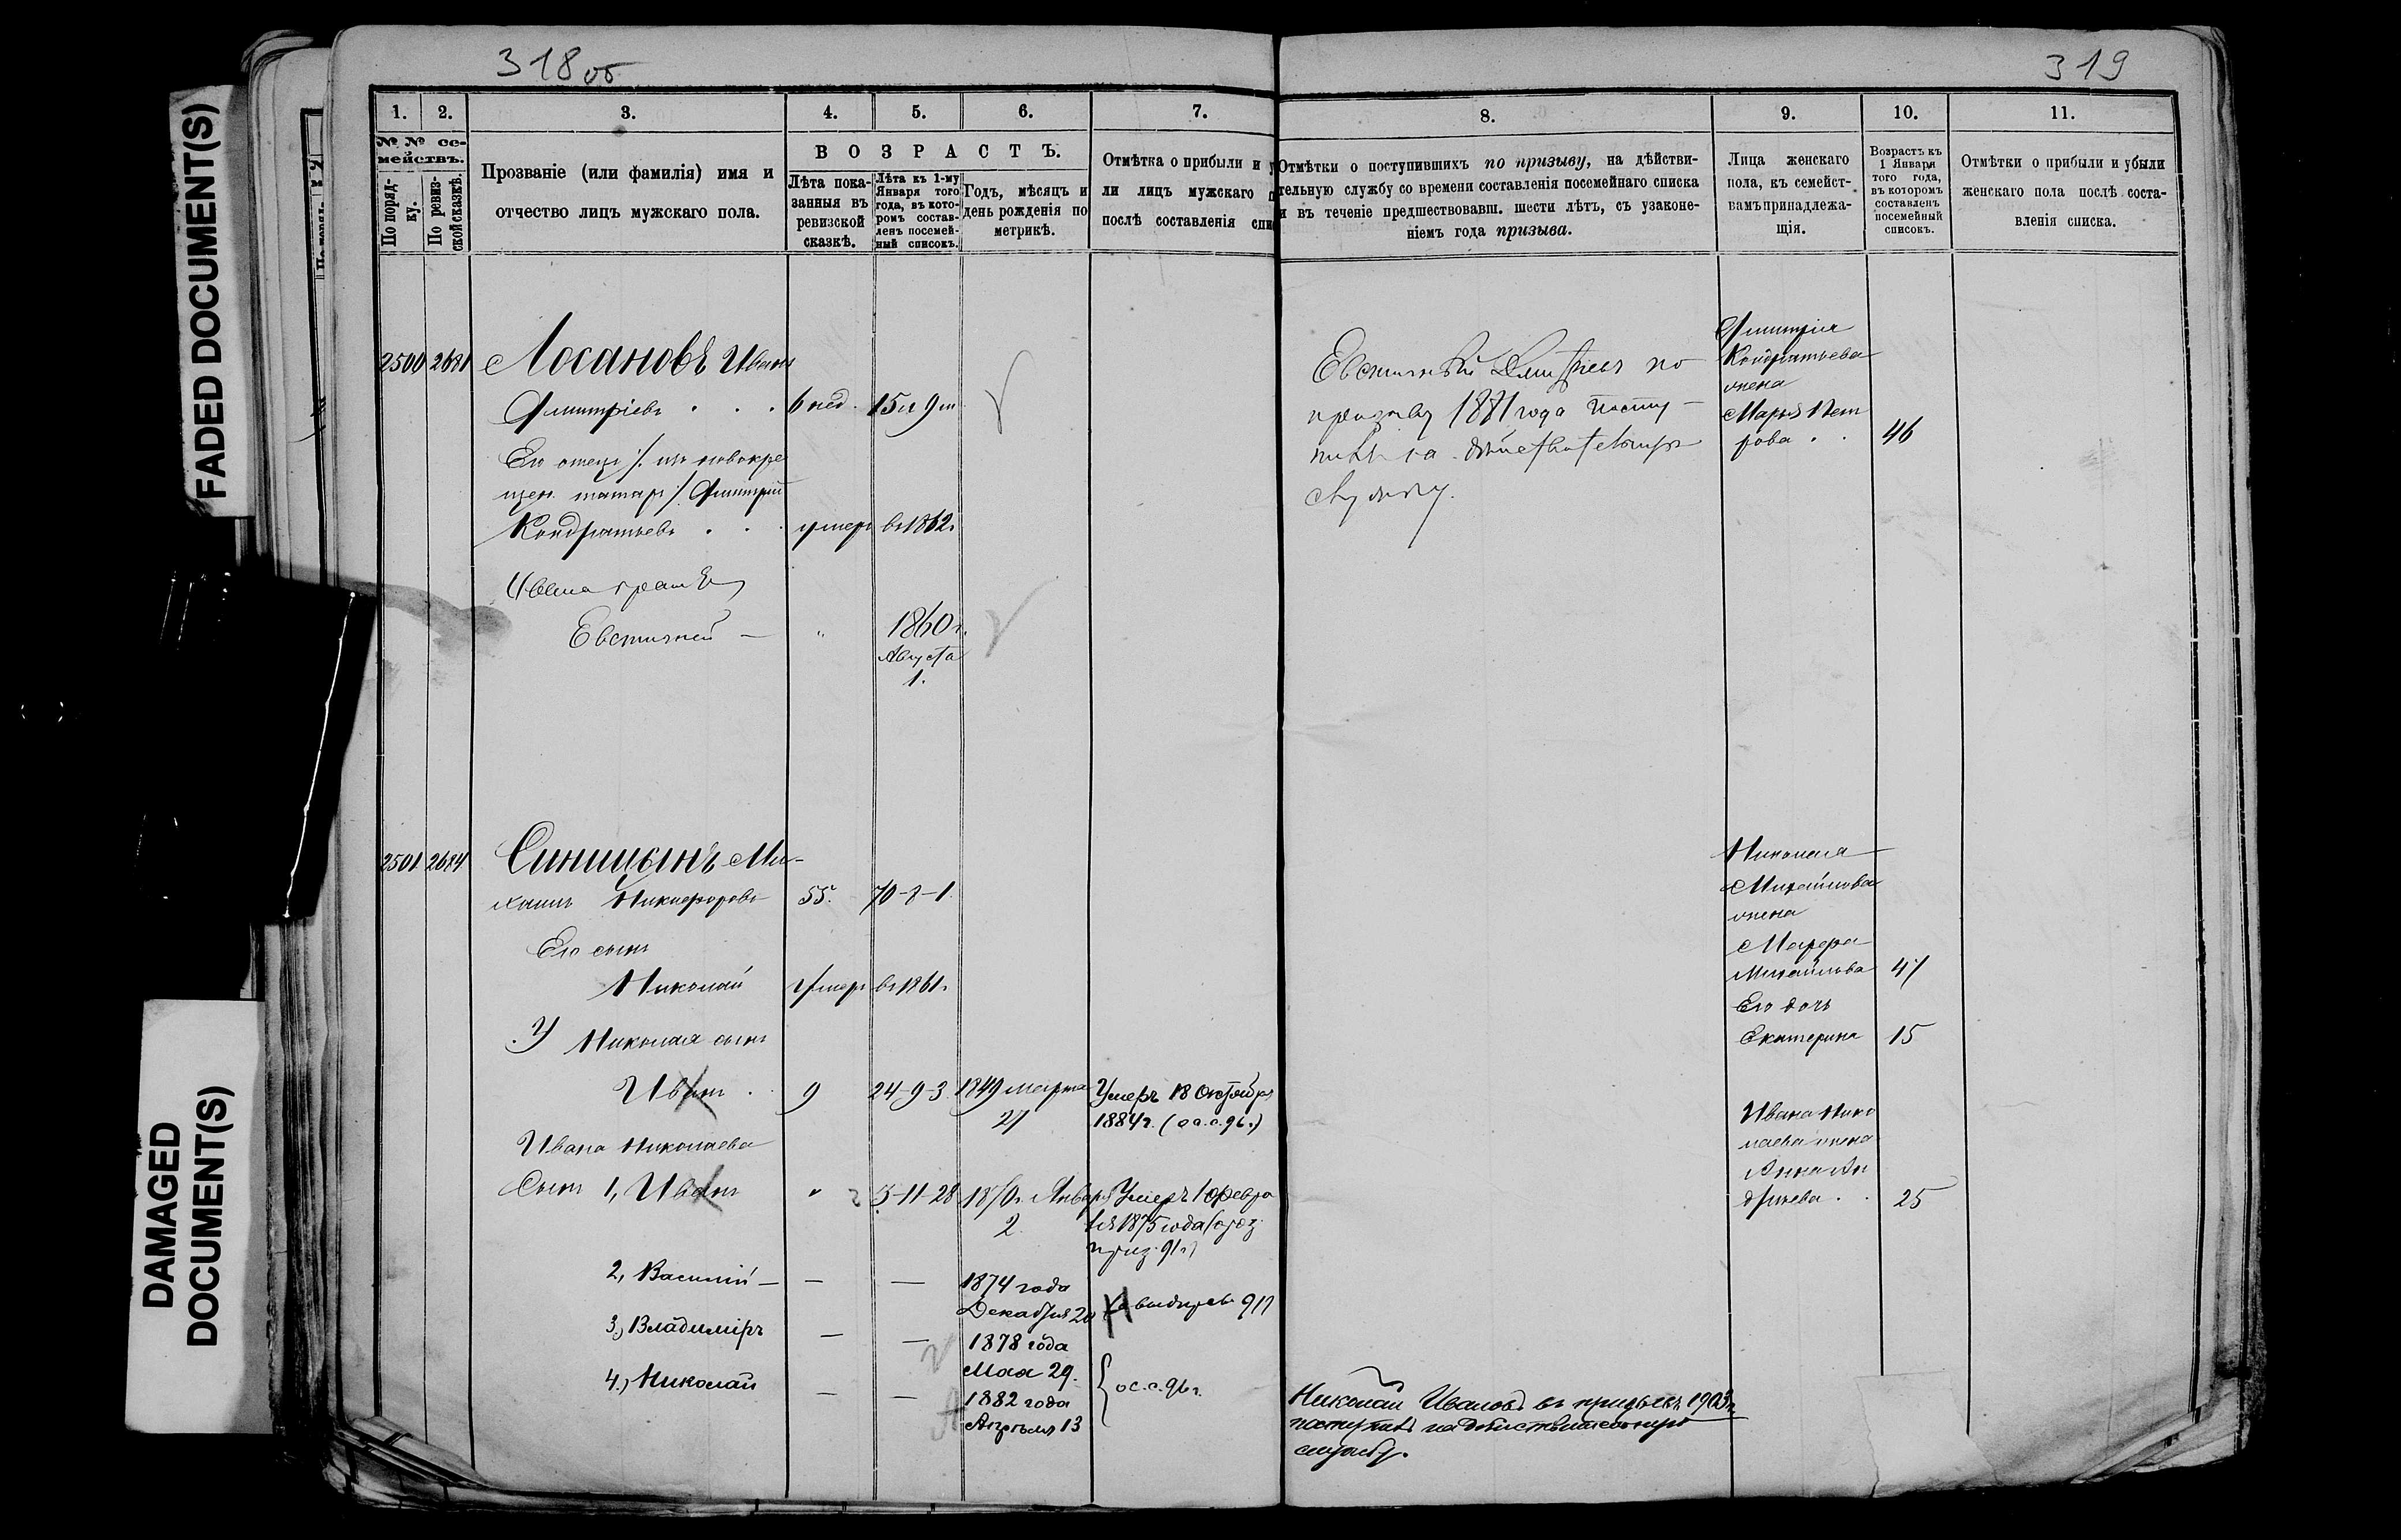 FADED DOCUMENT(S)
DAMAGED
DOCUMENT(S)
318 об
319
1.
2.
3.
4.
5.
6.
7.
8.
9.
10.
11.
№ № се-
мействъ.
По поряд-
ку.
По ревиз-
ской сказкѣ.
Прозваніе (или фамилія) имя и
отчество лицъ мужскаго пола.
ВОЗРАСТЪ.
Лѣта пока-
занныя въ
ревизской
сказкѣ.
Лѣта къ 1-му
Января того
года, въ кото-
ромъ состав-
ленъ посемей-
ный списокъ.
Годъ, мѣсяцъ и
день рожденія по
метрикѣ.
Отмѣтка о прибыли и у
ли лицъ мужскаго п
послѣ составленія спи
Отмѣтки о поступившихъ по призыву, на дѣйстви-
тельную службу со времени составленія посемейнаго списка
и въ теченіе предшествовавш. шести лѣтъ, съ узаконе-
ніемъ года призыва.
Лица женскаго
пола, къ семейст-
вамъ принадлежа-
щія.
Возрастъ къ
1 Января
того года,
въ которомъ
составленъ
посемейный
списокъ.
Отмѣтки о прибыли и убыли
женскаго пола послѣ соста-
вленія списка.
2500
2681
Лосановъ Иванъ
Дмитріевъ . . .
6 нед.
15 л 9 м
Его отецъ /: из новокре
щен. татар :/ Дмитрій
Кондратьевъ . . .
умеръ
в 1862 г
Ивана братъ Ег
Евстигней —
"
1860 г.
Августа
1.
Евстигнѣй Дмитріевъ по
призыву 1881 года посту-
пилъ на дѣйствительную
службу.
Дмитрія
Кондратьева
жена
Марья Пет
рова . .
46
2501
2684
Синицынъ Ми-
хаилъ Никифоровъ
55.
70-8-1
Его сынъ
Николай
умеръ
в 1861 г
У Николая сынъ
Иванъ .
9
24-9-3
1849 Марта
27
Умеръ 18 Октября
1884 г. (о с. с. 96 г.)
Ивана Николаева
Сынъ 1, Иванъ
"
3-11-28
1870 г. Января
2
Умеръ 1 Февра
ля 1875 года
приз. 91 г)
2, Василій —
—
—
1874 года
Декабря 20
3, Владиміръ
—
—
1878 года
Мая 29.
4, Николай
—
—
1882 года
Апрѣля 13
ос. с. 96 г.
Николай Ивановъ въ призывъ 1903 г.
поступилъ на дѣйствительную
службу.
Николая
Михайлова
жена
Марфа
Михайлова
47
Его дочь
Екатерина
15
Ивана Нико
лаева жена
Анна Ан
дреева . .
25